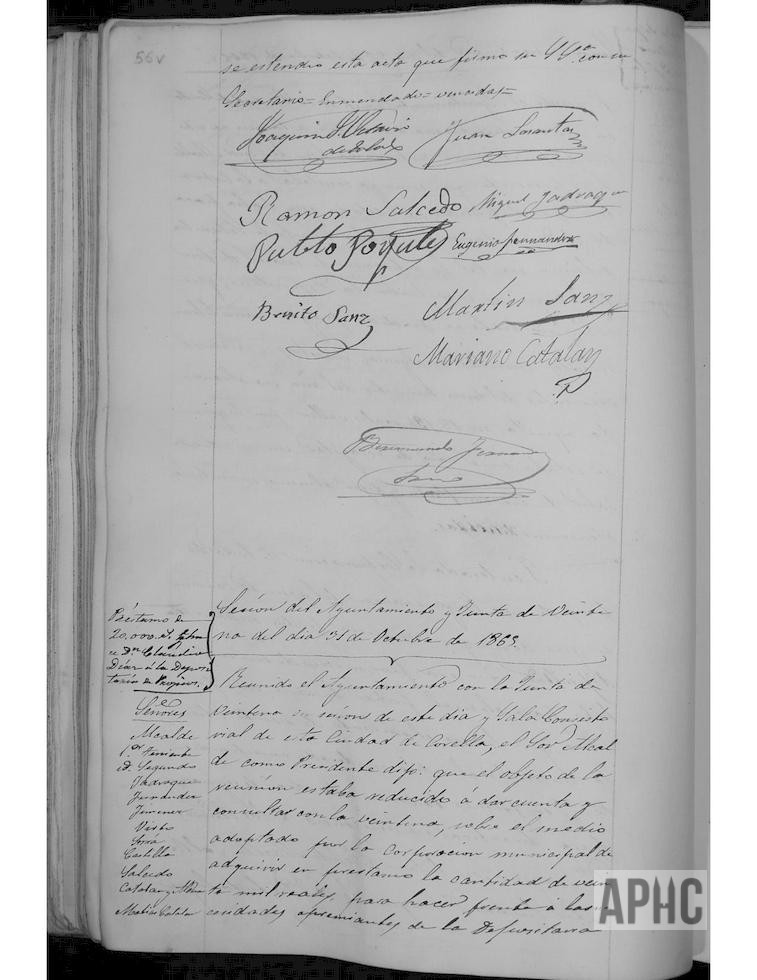 56v
se estendio esta acta que firmo su Sª con su
Secretario = Enmendado = vencidas =
Joaquin
Juan
Ramon Salcedo Miguel Jadraque
Pablo Eugenio Fernandez
Benito Sanz Martin Sanz
Mariano Catalan
Sesion del Ayuntamiento y Junta de Veinte
na del dia 31 de Octubre de 1863.
Préstamo de
20,000 rs
ce Dn Claudio
Díaz á la Deposi
taria de Propios.
Reunido el Ayuntamiento con la Junta de
Veintena en sesion de este dia y Sala Consisto
rial de esta Ciudad de Corella, el Sor Alcal
de como Presidente dijo: que el objeto de la
reunion estaba reducido á dar cuenta y
consultar con la veintena, sobre el medio
adoptado por la corporacion municipal de
adquirir en prestamo la cantidad de vein
te mil reales, para hacer frente á las ne
cesidades apremiantes de la Depositaria
Señores
Alcalde
1er Teniente
id. Segundo
Jadraque
Fernandez
Jimenez
Virto
Castilla
Salcedo
Catalan
Matias Catalan
APHC